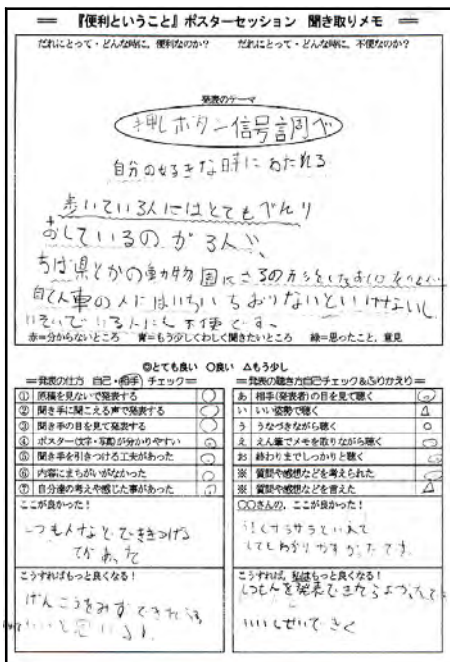 『便利ということ』ポスターセッション 聞き取りメモ
だれにとって・どんな時に、便利なのか？ だれにとって・どんな時に、不便なのか？
発表のテーマ
押しボタン信号調べ
自分の好きな時にわたれる
歩いている人にはとてもべんり
おしているのが3人
ちば県とかの動物園にさるの
自てん車の人にはいちいちおりないといけないし
いそいでいる人にも不便です。
赤＝分からないところ 青＝もう少しくわしく聞きたいところ 緑＝思ったこと、意見
◎とても良い ○良い △もう少し
＝発表の仕方 自己・相手 チェック＝
① 原稿を見ないで発表する ○
② 聞き手に聞こえる声で発表する ○
③ 聞き手の目を見て発表する ○
④ ポスター(文字・写真)が分かりやすい ◎
⑤ 聞き手を引きつける工夫があった
⑥ 内容にまちがいがなかった
⑦ 自分達の考えや感じた事があった
ここが良かった！
しつもんなどでひきつける
てがあった
こうすればもっと良くなる！
げんこうをみずできたら
いいと思います
＝発表の聴き方自己チェック&ふりかえり＝
あ 相手(発表者)の目を見て聴く ◎
い いい姿勢で聴く △
う うなづきながら聴く ○
え えん筆でメモを取りながら聴く
お 終わりまでしっかりと聴く
※ 質問や感想などを考えられた
※ 質問や感想などを言えた △
○○さんの、ここが良かった！
サラサラといえて
とてもわかりやすかったです
こうすれば、私はもっと良くなる！
しつもんを発表できたらよかった
いいしせいできく